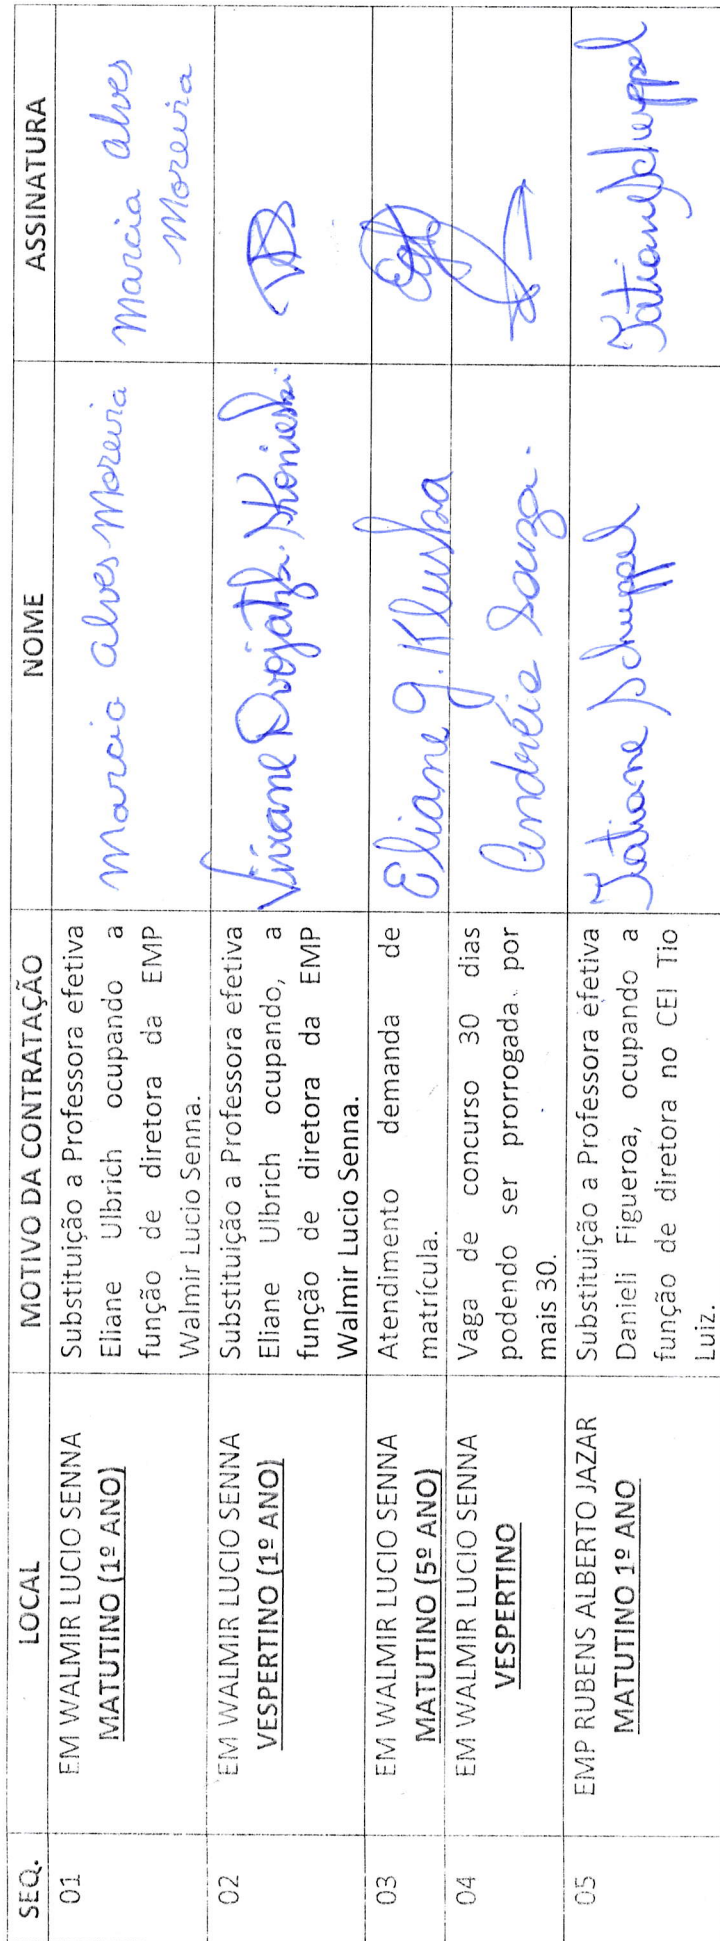 SEQ. LOCAL MOTIVO DA CONTRATAÇÃO NOME ASSINATURA
01
EM WALMIR LUCIO SENNA
MATUTINO (1º ANO)
Substituição a Professora efetiva
Eliane Ulbrich ocupando a
função de diretora da EMP
Walmir Lucio Senna.
Marcia Alves Moreira
Marcia Alves
Moreira
02
EM WALMIR LUCIO SENNA
VESPERTINO (1º ANO)
Substituição a Professora efetiva
Eliane Ulbrich ocupando, a
função de diretora da EMP
Walmir Lucio Senna.
Viviane
03
EM WALMIR LUCIO SENNA
MATUTINO (5º ANO)
Atendimento demanda de
matrícula.
Eliane G. Kluska
04
EM WALMIR LUCIO SENNA
VESPERTINO
Vaga de concurso 30 dias
podendo ser prorrogada por
mais 30.
Andréia Souza.
05
EMP RUBENS ALBERTO JAZAR
MATUTINO 1º ANO
Substituição a Professora efetiva
Danieli Figueroa, ocupando a
função de diretora no CEI Tio
Luiz.
Tatiane Schuppel
Tatiane Schuppel